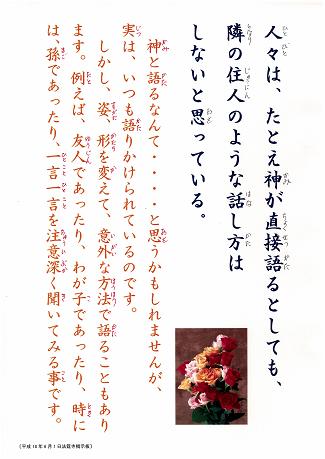 人々は、たとえ神が直接語るとしても、
隣の住人のような話し方は
しないと思っている。
神と語るなんて・・・・と思うかもしれませんが、
実は、いつも語りかけられているのです。
しかし、姿、形を変えて、意外な方法で語ることもあり
ます。例えば、友人であったり、わが子であったり、時に
は、孫であったり、一言一言を注意深く聞いてみる事です。